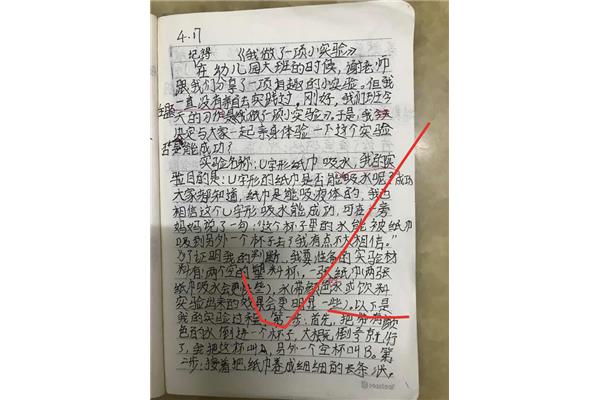 4.17
记得 《我做了一项小实验》
在幼儿园大班的时候，谢老师
跟我们分享了一项有趣的小实验。但我
一直没有去实践过。刚好，我们班今
天的习作是我做了一项小实验。于是，我
决定与大家一起亲身体验一下这个实验
能成功？
实验名称：U字形纸巾吸水，我的实
验目的是：U字形的纸巾是否能吸水呢？成功
大家都知道，纸巾是能吸液体的，我
相信这个U字形吸水能成功，可在一旁
妈妈说了一句：“这个杯子里的水能被纸巾
吸到另外一个杯子去？我有点不太相信。”
为了证明我的判断，我准备的实验材
料有：两个空的塑料杯，一张纸巾（两张
纸巾吸水会更些），水（带颜色的水或饮料
实验出来的效果会更明显一些）。以下是
我的实验过程：第一步：首先，把带有颜
色的水倒进一个杯子，大概倒就行
了，我把这杯叫A，另外一个空杯叫B。第
二步：接着把纸巾卷成细细的长条状。